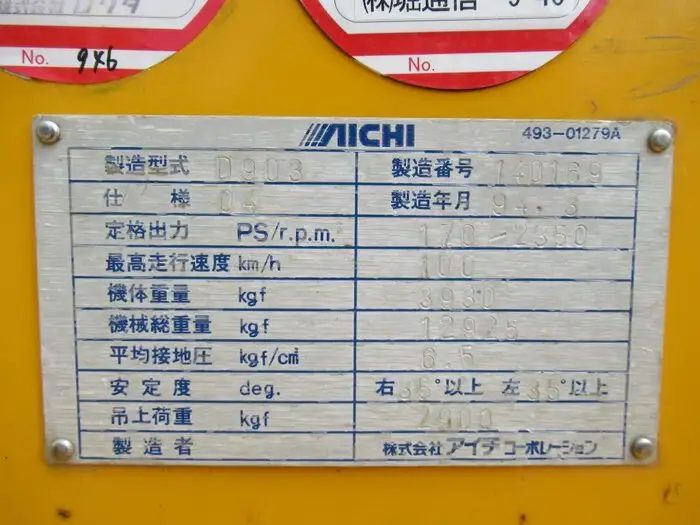 No. 9x6
(株)堀通信 9-46
No.
AICHI 493-01279A
製造型式 D903 製造番号 140169
仕様 04 製造年月 94.3
定格出力 PS/r.p.m. 170-2350
最高走行速度 km/h 100
機体重量 kgf 3930
機械総重量 kgf 12925
平均接地圧 kgf/cm² 6.5
安定度 deg. 右35°以上 左35°以上
吊上荷重 kgf 2900
製造者 株式会社アイチコーポレーション